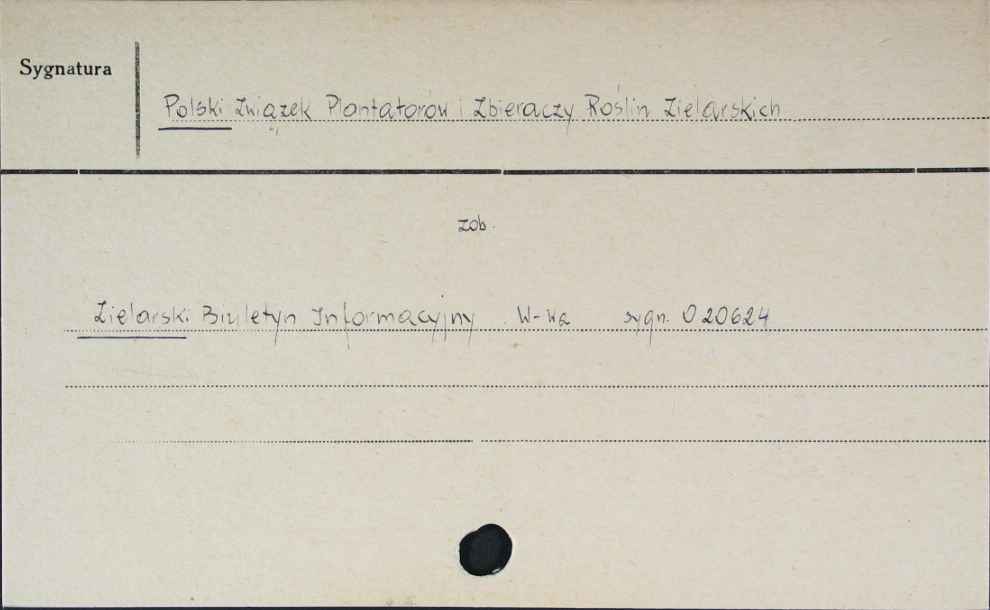 Sygnatura
Polski Związek Plantatorów i Zbieraczy Roślin Zielarskich
zob.
Zielarski Biuletyn Informacyjny W-wa sygn. 020624